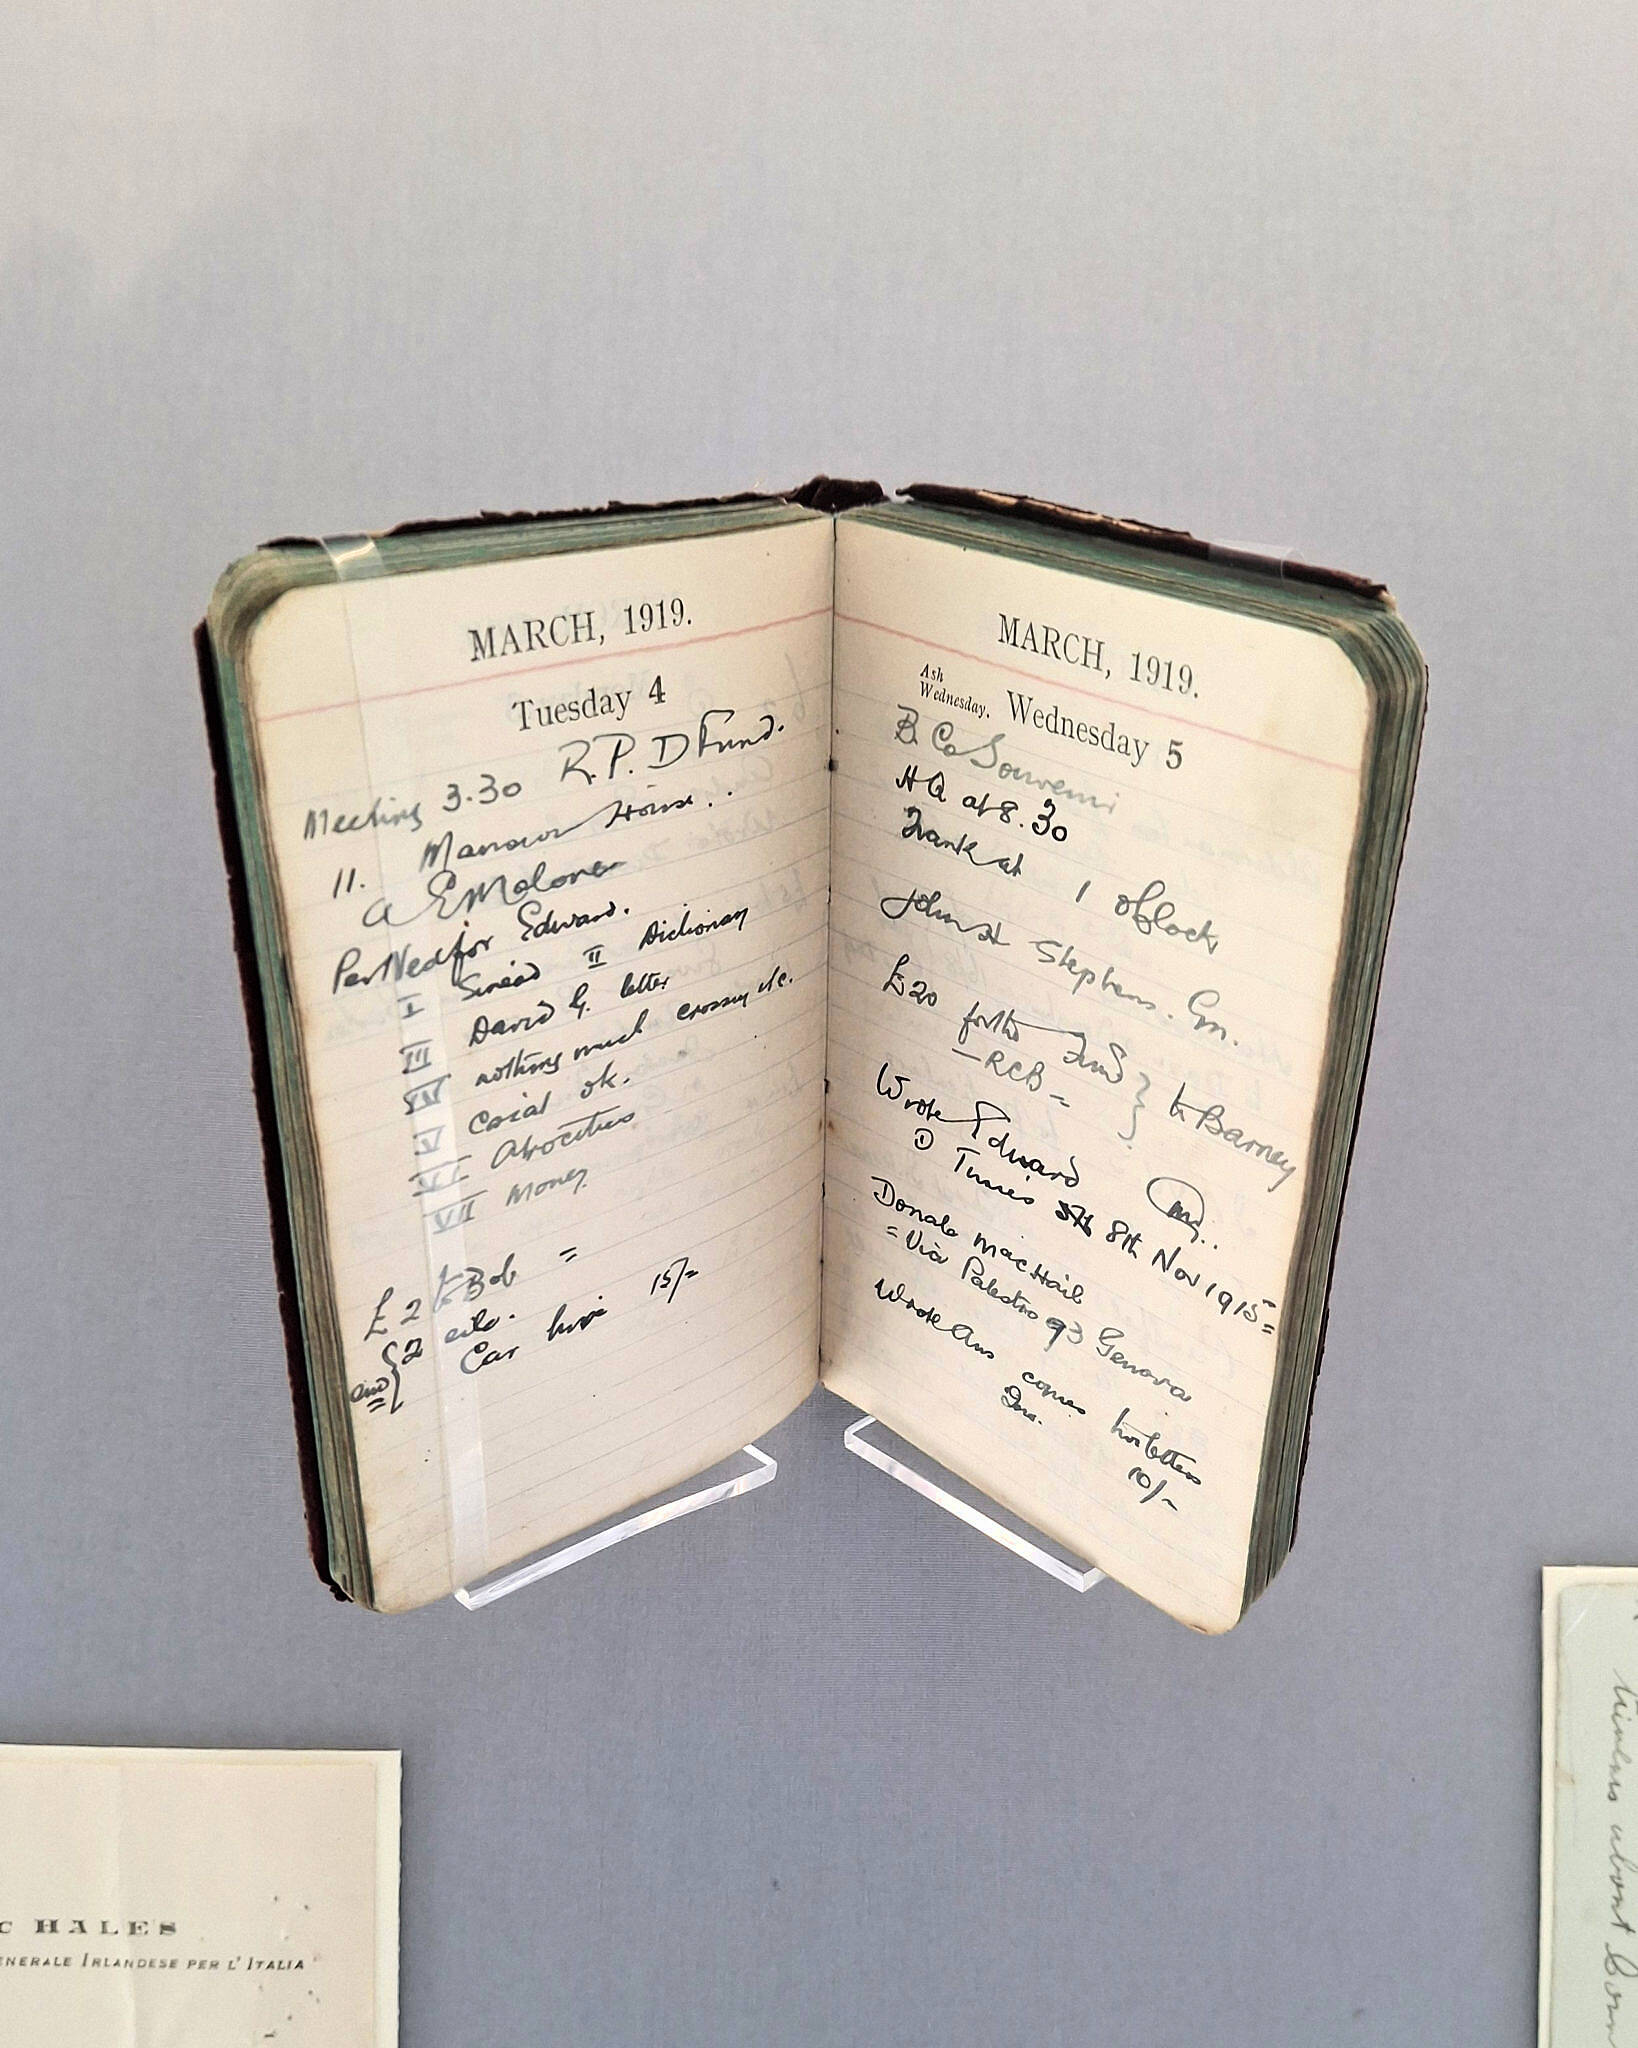 MARCH, 1919.
Tuesday 4
Meeting 3.30 R.P. D Fund.
11. Mansion House..
a E Moloney
Per Ned for Edward.
I Sinéad II Dictionary
III David G. letter
IV nothing much crossing etc.
V ok.
VI Atrocities
VII Money
£2 to Bob =
2
Car hire 15/=
MARCH, 1919.
Ash
Wednesday. Wednesday 5
B. Co
HQ at 8.30
Frank at 1 o'clock
John St Stephens. Gn.
£20 for the Fund } to Barney
- RCB =
Wrote Edward
D Times 8th Nov 1915 =
Donal MacHail
= Via Palestro 93 Genova
Wrote Ans comes for letters
10/-
C HALES
ENERALE IRLANDESE PER L'ITALIA
about